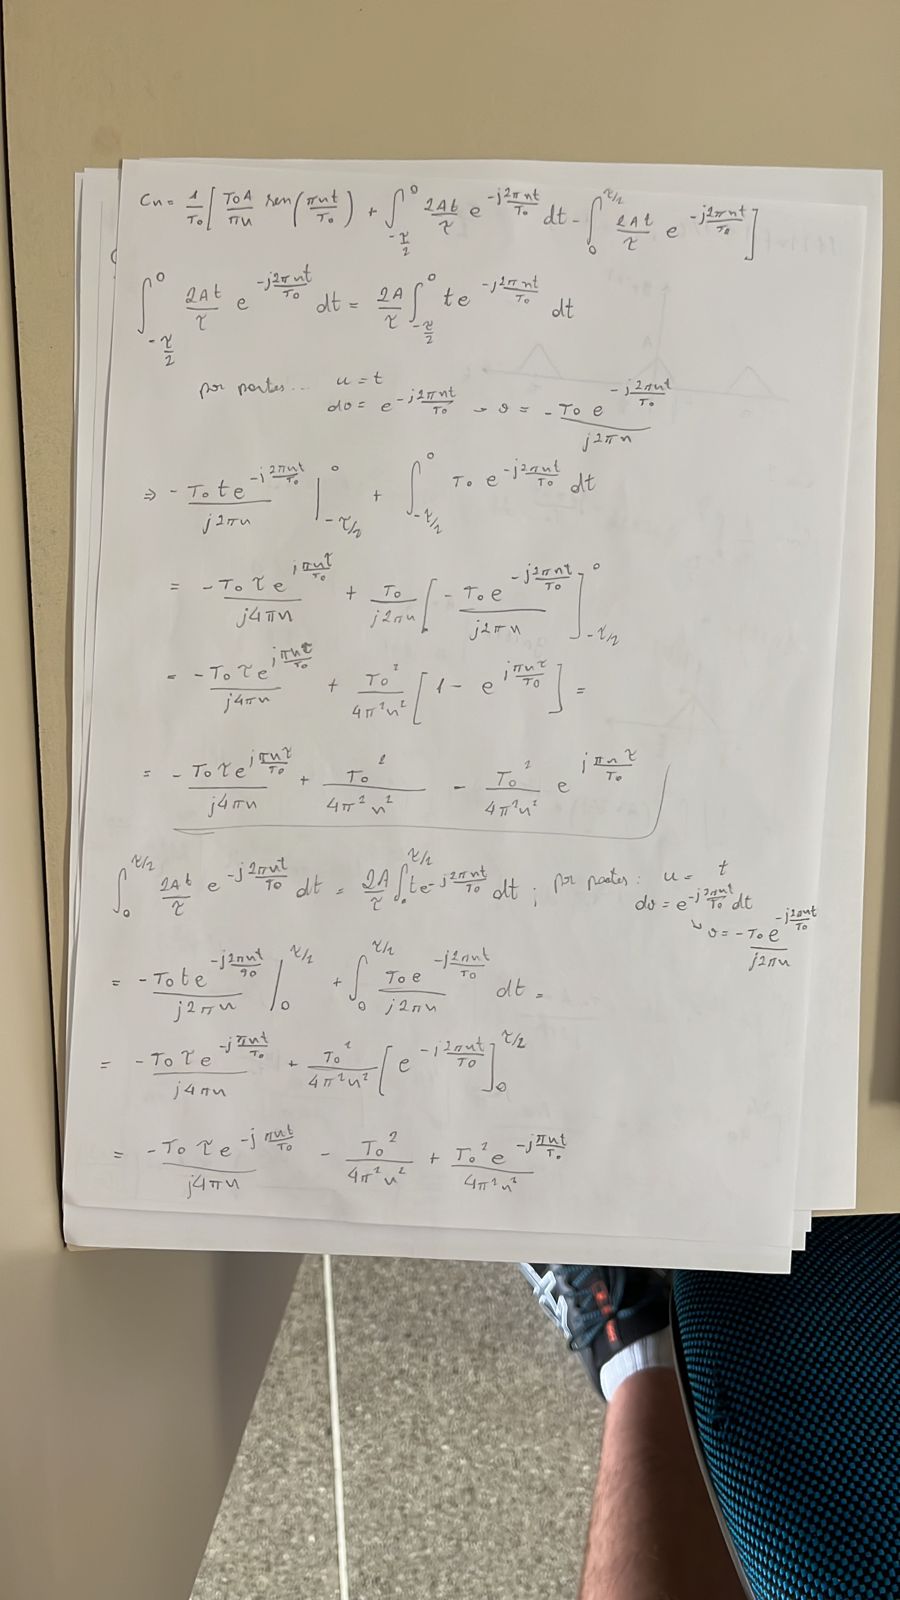 Cn = 1/T₀ [ T₀A/πn sen(πnt/T₀) + ∫_{-τ/2}^{0} 2At/τ e^{-j2πnt/T₀} dt - ∫_{0}^{τ/2} 2At/τ e^{-j2πnt/T₀} ]
∫_{-τ/2}^{0} 2At/τ e^{-j2πnt/T₀} dt = 2A/τ ∫_{-τ/2}^{0} t e^{-j2πnt/T₀} dt
por partes... u = t
dv = e^{-j2πnt/T₀} → v = -T₀ e^{-j2πnt/T₀} / j2πn
⇒ -T₀ t e^{-j2πnt/T₀} / j2πn |_{-τ/2}^{0} + ∫_{-τ/2}^{0} T₀ e^{-j2πnt/T₀} dt
= -T₀ τ e^{jπnτ/T₀} / j4πn + T₀/j2πn [ -T₀ e^{-j2πnt/T₀} / j2πn ]_{-τ/2}^{0}
= -T₀ τ e^{jπnτ/T₀} / j4πn + T₀²/4π²n² [ 1 - e^{jπnτ/T₀} ] =
= -T₀ τ e^{jπnτ/T₀} / j4πn + T₀²/4π²n² - T₀²/4π²n² e^{jπnτ/T₀}
∫_{0}^{τ/2} 2At/τ e^{-j2πnt/T₀} dt = 2A/τ ∫_{0}^{τ/2} t e^{-j2πnt/T₀} dt ; por partes: u = t
dv = e^{-j2πnt/T₀} dt
↳ v = -T₀ e^{-j2πnt/T₀} / j2πn
= -T₀ t e^{-j2πnt/90} / j2πn |_{0}^{τ/2} + ∫_{0}^{τ/2} T₀ e^{-j2πnt/T₀} / j2πn dt =
= -T₀ τ e^{-jπnt/T₀} / j4πn + T₀²/4π²n² [ e^{-j2πnt/T₀} ]_{0}^{τ/2}
= -T₀ τ e^{-jπnt/T₀} / j4πn - T₀²/4π²n² + T₀² e^{-jπnt/T₀} / 4π²n²